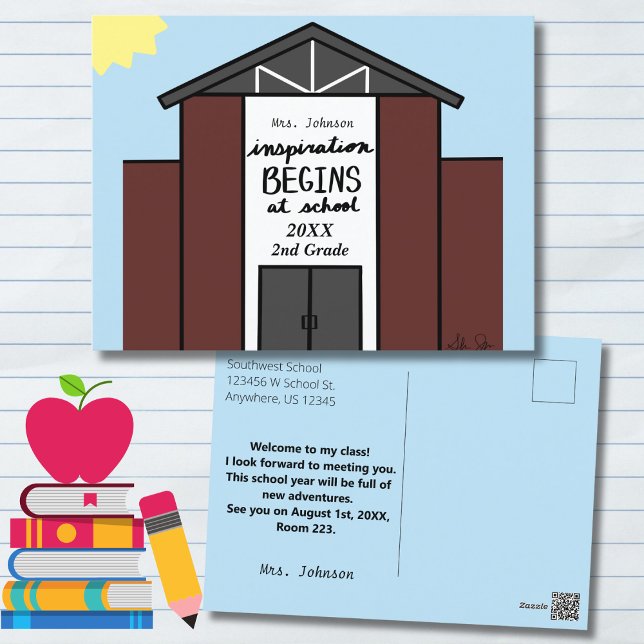 Mrs. Johnson
inspiration
BEGINS
at school
20XX
2nd Grade
Southwest School
123456 W School St.
Anywhere, US 12345
Welcome to my class!
I look forward to meeting you.
This school year will be full of
new adventures.
See you on August 1st, 20XX,
Room 223.
Mrs. Johnson
Zazzle